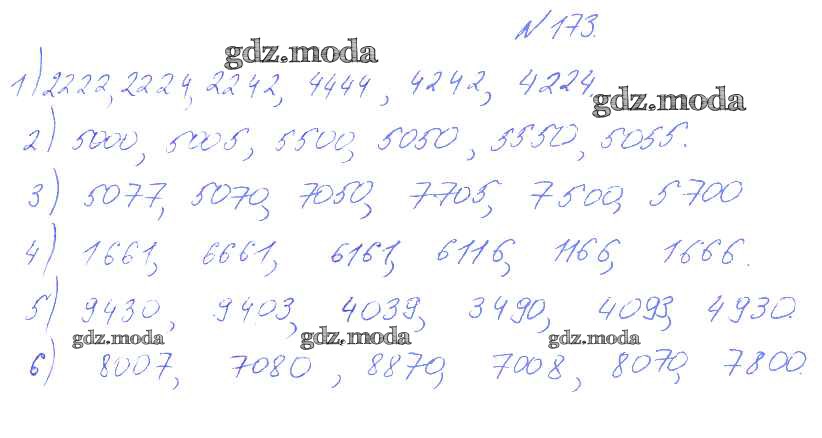 №173.
gdz.moda
1) 2222, 2224, 2242, 4444, 4242, 4224.
gdz.moda
2) 5000, 5005, 5500, 5050, 5550, 5055.
3) 5077, 5070, 7050, 7705, 7500, 5700
4) 1661, 6661, 6161, 6116, 1166, 1666.
5) 9430, 9403, 4039, 3490, 4093, 4930.
gdz.moda gdz.moda gdz.moda
6) 8007, 7080, 8870, 7008, 8070, 7800.